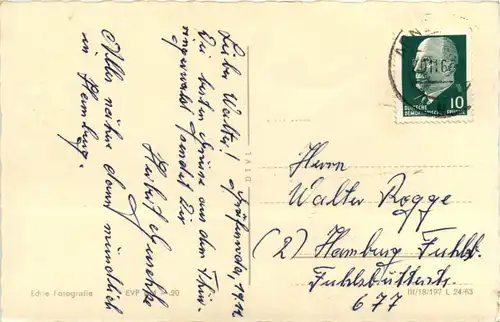 Lieber Walter!
Die besten Grüsse aus dem Thür-
ingerwald sendet Dir
Herbert
Alles nähere dann mündlich
in Hamburg.
DEUTSCHE
DEMOKRATISCHE
10
Herrn
Walter Rogge
(2) Hamburg Fuhlsb.
677
Echte Fotografie
EVP
III/18/197 L 24/63